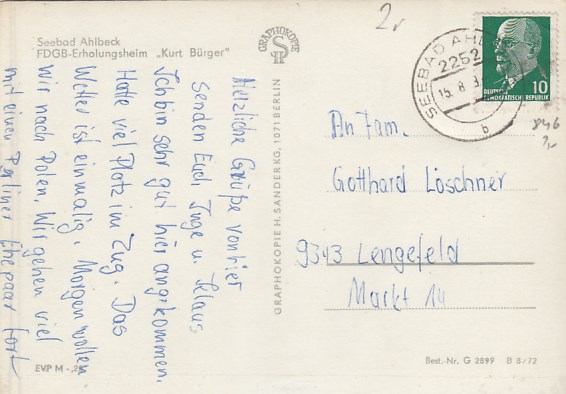 Seebad Ahlbeck
FDGB-Erholungsheim „Kurt Bürger"
Herzliche Grüße von hier
senden Euch Inge u. Klaus
Ich bin sehr gut hier angekommen.
Hatte viel Platz im Zug. Das
Wetter ist einmalig. Morgen wollen
wir nach Polen. Wir gehen viel
mit einen Berliner Ehepaar fort
EVP M -,25
GRAPHOKOPIE
GRAPHOKOPIE H. SANDER KG, 1071 BERLIN
2,-
SEEBAD AHL
2252
15. 8.
b
DEUTSCHE
DEMOKRATISCHE REPUBLIK
10
846
An Fam.
Gotthard Löschner
9343 Lengefeld
Markt 14
Best.-Nr. G 2899 B 8/72